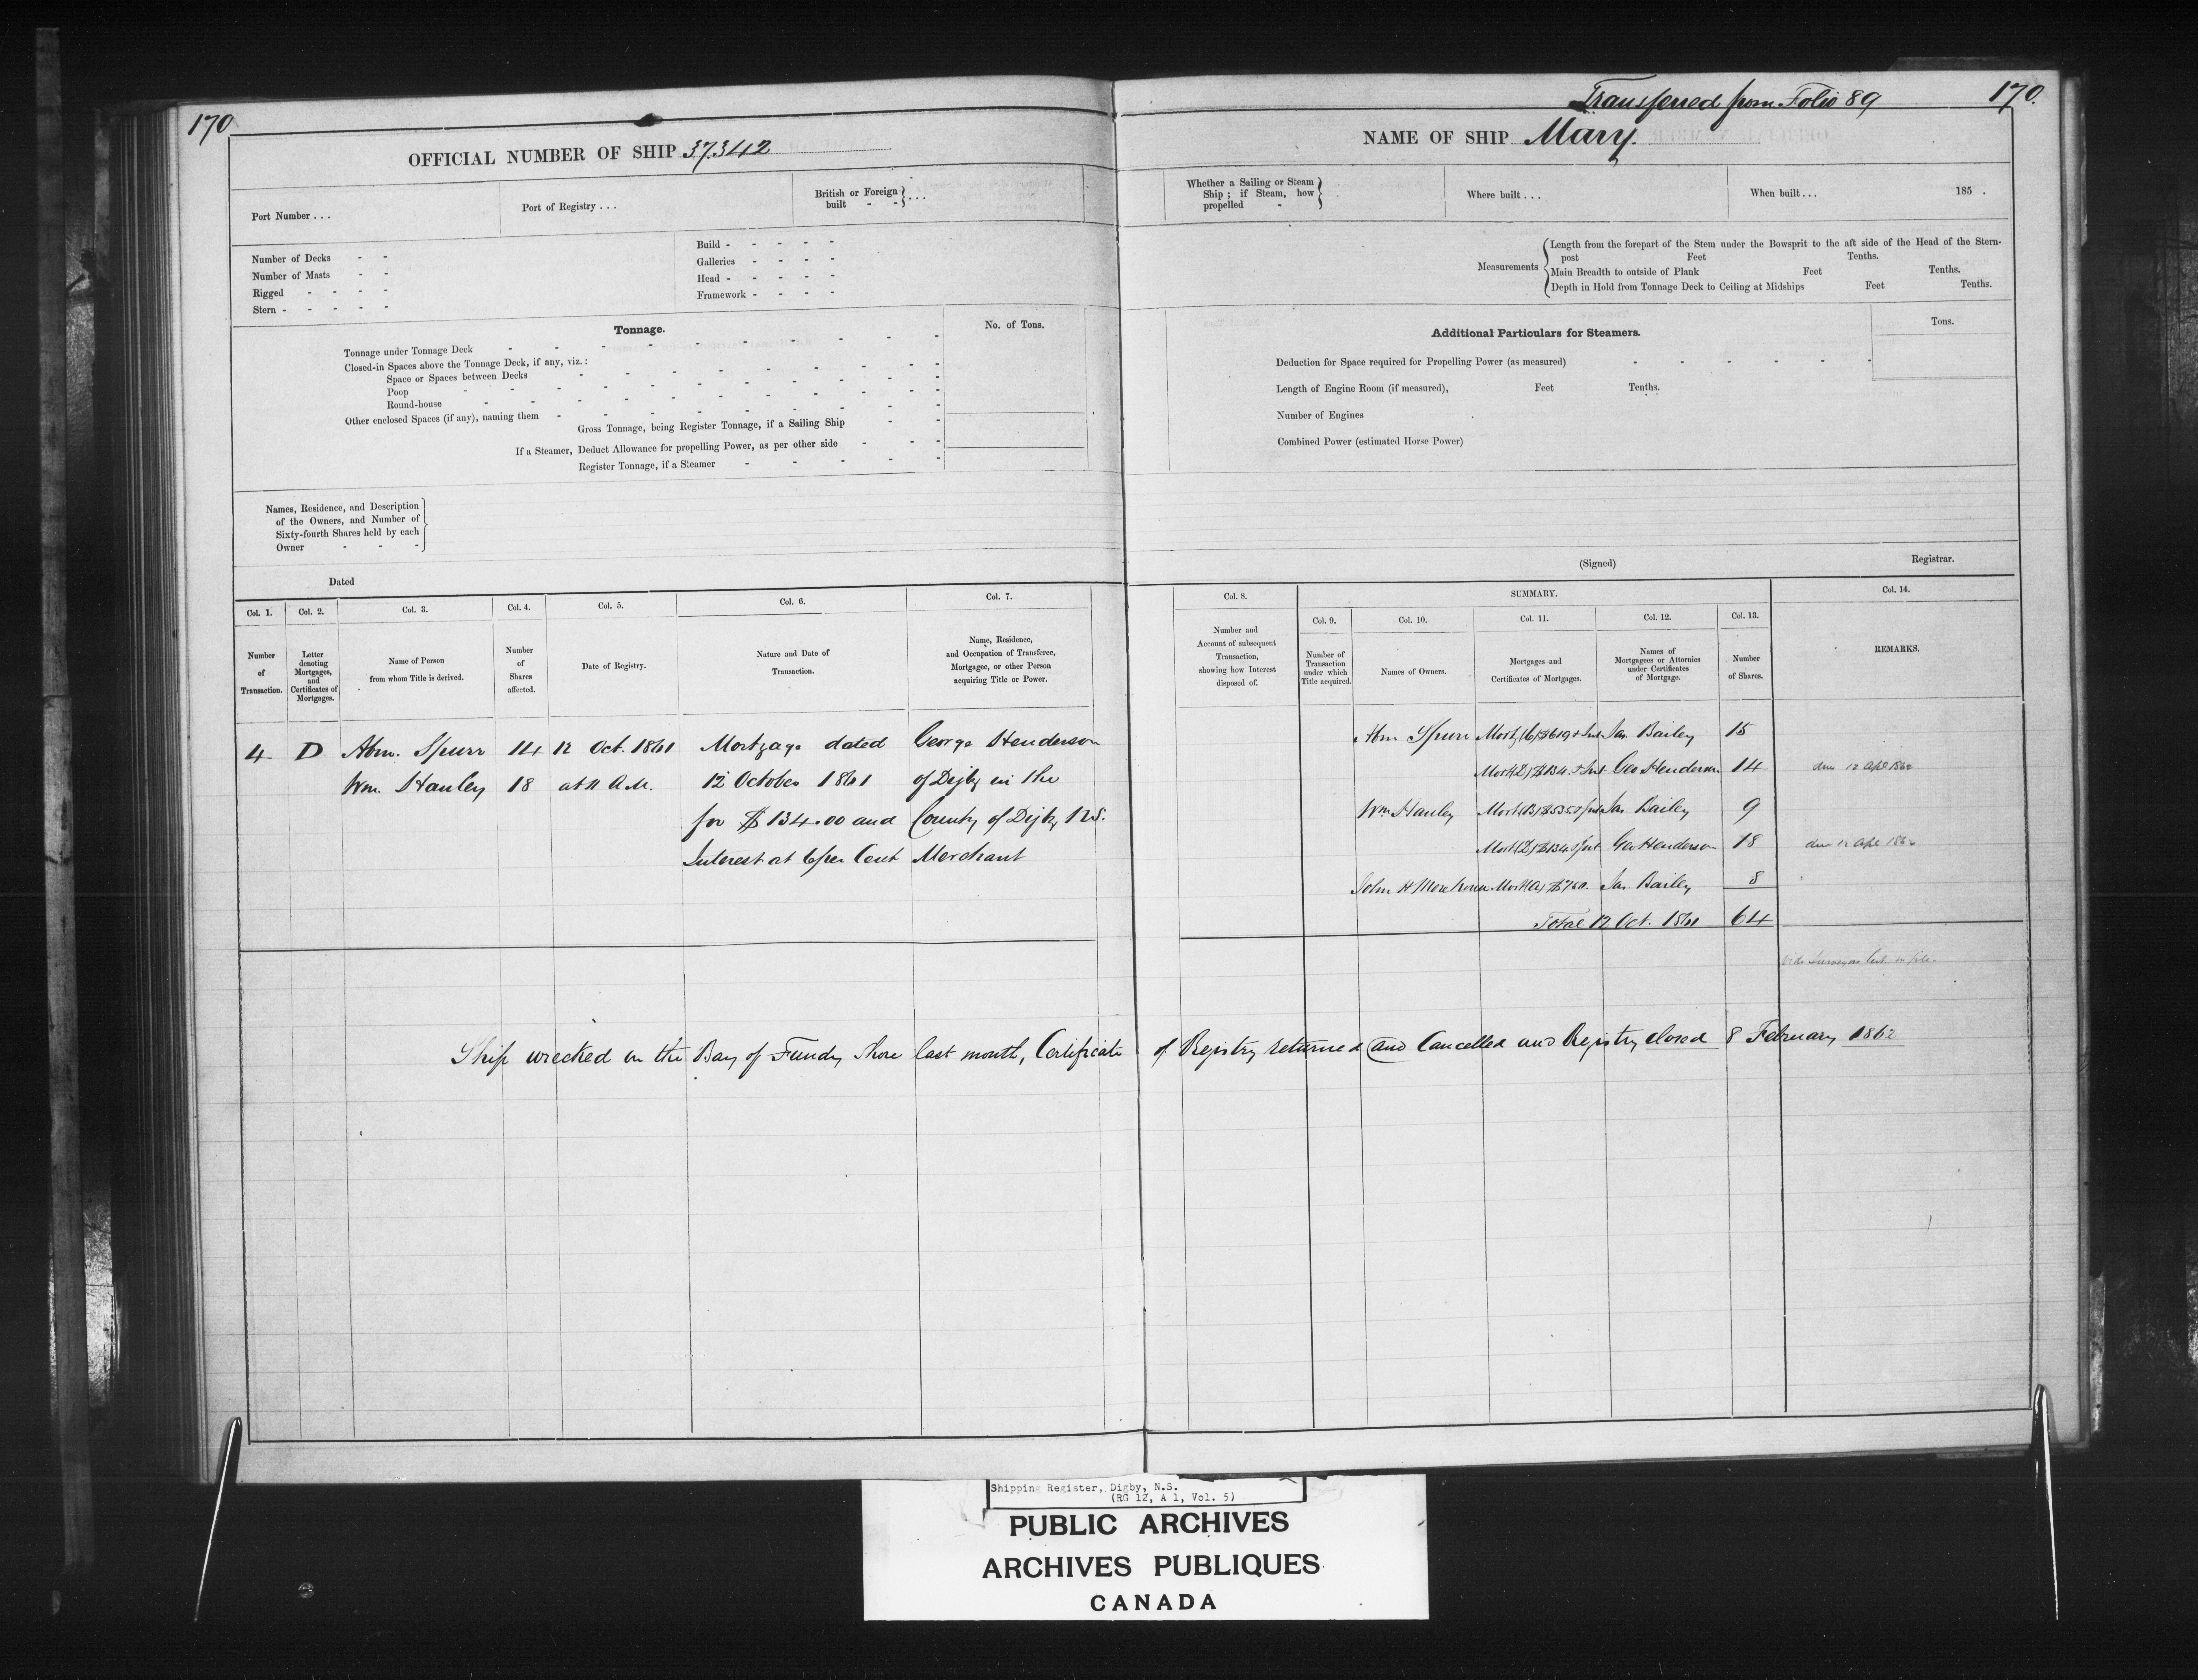 Transferred from Folio 89
170
170.
OFFICIAL NUMBER OF SHIP 37.342
NAME OF SHIP Mary.
Port Number . . .
Port of Registry . . .
British or Foreign built - - . . .
Whether a Sailing or Steam Ship ; if Steam, how propelled -
Where built . . .
When built . . . 185 .
Number of Decks - -
Number of Masts - -
Rigged - - - -
Stern - - - - -
Build - - - - -
Galleries - - - -
Head - - - - -
Framework - - - -
Measurements
Length from the forepart of the Stem under the Bowsprit to the aft side of the Head of the Stern-
post Feet Tenths.
Main Breadth to outside of Plank Feet Tenths.
Depth in Hold from Tonnage Deck to Ceiling at Midships Feet Tenths.
Tonnage.
No. of Tons.
Tonnage under Tonnage Deck
Closed-in Spaces above the Tonnage Deck, if any, viz. :
Space or Spaces between Decks
Poop
Round-house
Other enclosed Spaces (if any), naming them
Gross Tonnage, being Register Tonnage, if a Sailing Ship
If a Steamer, Deduct Allowance for propelling Power, as per other side
Register Tonnage, if a Steamer
Additional Particulars for Steamers.
Tons.
Deduction for Space required for Propelling Power (as measured)
Length of Engine Room (if measured), Feet Tenths.
Number of Engines
Combined Power (estimated Horse Power)
Names, Residence, and Description
of the Owners, and Number of
Sixty-fourth Shares held by each
Owner - - -
Dated
(Signed) Registrar.
Col. 1. Col. 2. Col. 3. Col. 4. Col. 5. Col. 6. Col. 7.
Number of Transaction.
Letter denoting Mortgages, and Certificates of Mortgages.
Name of Person from whom Title is derived.
Number of Shares affected.
Date of Registry.
Nature and Date of Transaction.
Name, Residence, and Occupation of Transferee, Mortgagee, or other Person acquiring Title or Power.
Col. 8. SUMMARY. Col. 14.
Col. 9. Col. 10. Col. 11. Col. 12. Col. 13.
Number and Account of subsequent Transaction, showing how Interest disposed of.
Number of Transaction under which Title acquired.
Names of Owners.
Mortgages and Certificates of Mortgages.
Names of Mortgagees or Attornies under Certificates of Mortgage.
Number of Shares.
REMARKS.
4 D Abm. Spurr 14 12 Oct. 1861 Mortgage dated George Henderson
Wm. Hanley 18 at 11 A.M. 12 October 1861 of Digby in the
for $134.00 and County of Digby N.S.
Interest at 6 per Cent Merchant
Abm Spurr Jas. Bailey 15
Mort (D) $134. + Int Geo Henderson 14 due 12 Apl 1862
Wm Hanley Jas. Bailey 9
Mort (D) $134 Geo Henderson 18 due 12 Apl 1862
John H Mort (A) $760. Jas. Bailey 8
Total 12 Oct. 1861 64
Vide Surveyors Cert. on file.
Ship wrecked on the Bay of Fundy Shore last month, Certificate of Registry returned and Cancelled and Registry closed 8 February 1862
Shipping Register, Digby, N.S.
(RG 12, A 1, Vol. 5)
PUBLIC ARCHIVES
ARCHIVES PUBLIQUES
CANADA